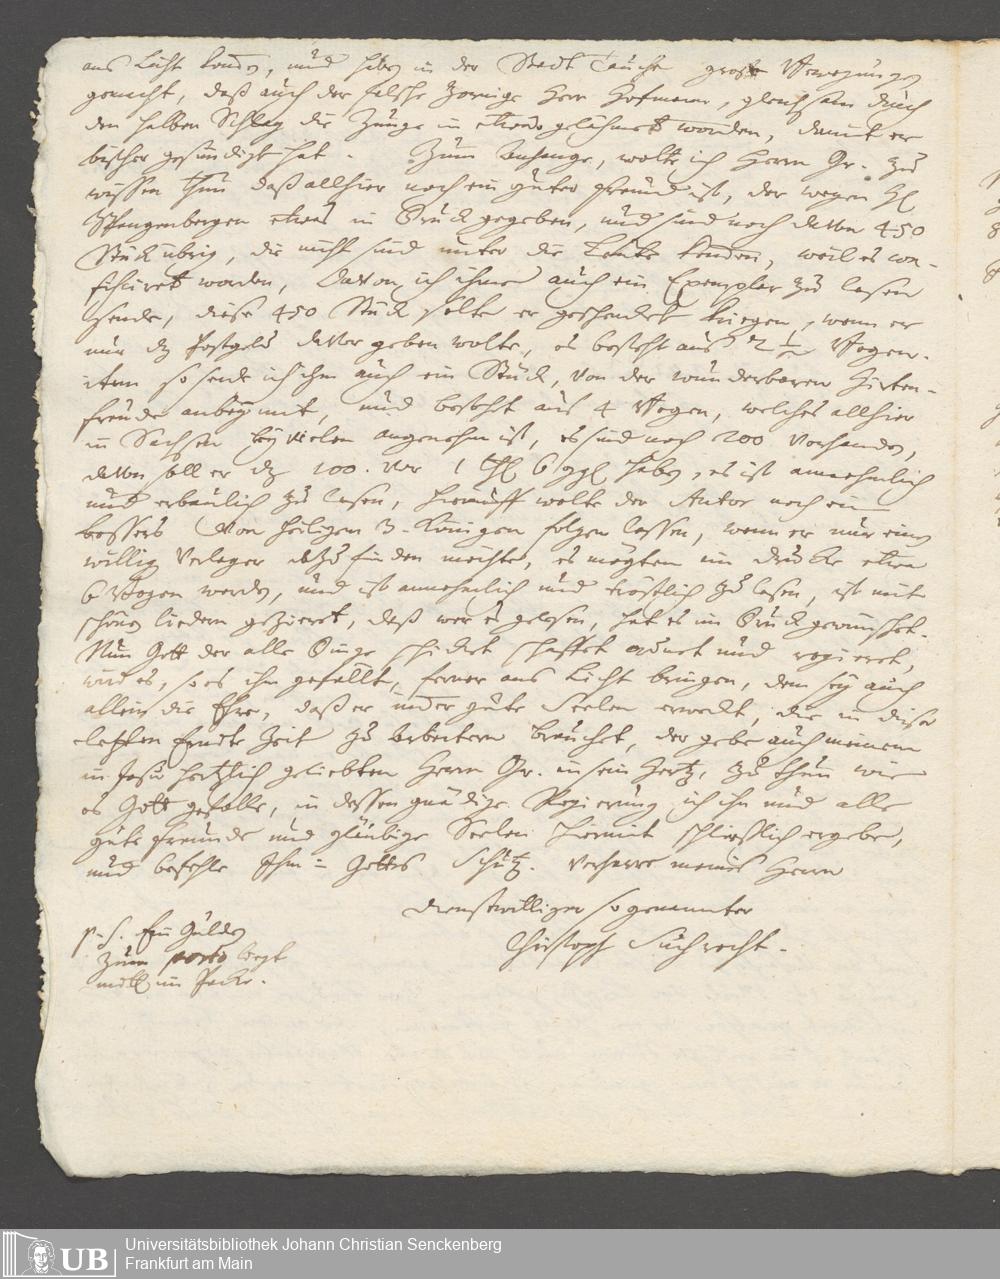 ans Licht komen, und haben in der Stadt Taucha große Bewegungen
gemacht, daß auch der falsche zornige Herr Hofmann, gleichsam durch
den halben Schlag die Zunge in etwas gelähmet worden, damit er
bißher gesündiget hat. Zum Anhange, wolte ich Herrn Gr. zu
wissen thun daß allhier noch ein guter Freund ist, der wegen H
Spangenbergen etwas in Druck gegeben, und sind noch davon 450
Stück übrig, die nicht sind unter die Leute komen, weil es con-
fisciret worden, davon ich ihme auch ein Exemplar zu lesen
sende, diese 450 Stück solte er geschenckt kriegen, wenn er
nur dz Postgeld davor geben wolte, es besteht aus 2 1/2 Bogen.
item so sende ich ihm auch ein Stück, von der wunderbaren Hirten-
freude anbey mit, und besteht aus 4 Bogen, welches allhier
in Sachsen bey vielen angenehm ist, es sind noch 200 vorhanden,
davon soll er dz 100. vor 1 Thl 6 ggl haben, es ist annehmlich
und erbaulich zu lesen, hierauff wolte der Autor noch ein
bessers von heiligen 3. Königen folgen lassen, wenn er nur einen
willig Verleger dazu finden möchte, es mögten im Drucke etwa
6 Bogen werden, und ist annehmlich und tröstlich zu lesen, ist mit
schönen Liedern gezieret, daß wer es gelesen, hat es im Druck gewünschet.
Nun Gott der alle Dinge schicket schaffet ordnet und regieret,
wird es, so es ihm gefällt, ferner ans Licht bringen, dem sey auch
allein die Ehre, daß er imer gute Seelen erweckt, die in dieser
letzten Erndte Zeit zu Arbeitern braucht, der gebe auch meinem
in Jesu hertzlich geliebten Herrn Gr. in sein Hertz, zu thun wie
es Gott gefalle, in dessen gnädige Regierung ich ihn und alle
gute Freunde und gläubige Seelen hiermit schließlich ergebe,
und befehle Ihn in Gottes Schutz. Verharre meines Herrn
dienstwilliger so genannter
Christoph Suchrecht.
P. S. Ein Gulden
zum porto liegt
mitt im Packe.
Universitätsbibliothek Johann Christian Senckenberg
Frankfurt am Main
UB